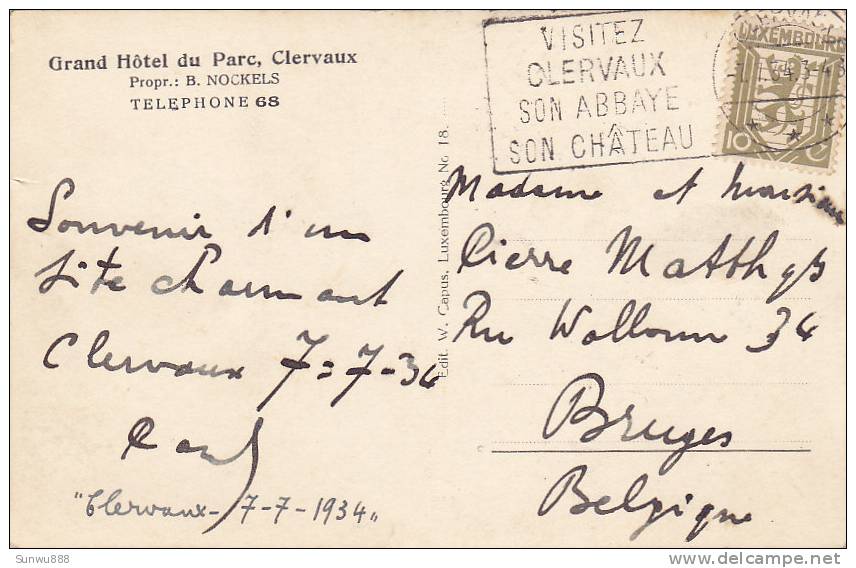 Grand Hôtel du Parc, Clervaux
Propr.: B. NOCKELS
TELEPHONE 68
VISITEZ
CLERVAUX
SON ABBAYE
SON CHÂTEAU
LUXEMBOURG
10
Edit. W. Capus, Luxembourg No 18.
Souvenir d'un
site charmant
Clervaux 7=7-34
Paul
"Clervaux-7-7-1934"
Madame et Monsieur
Pierre Matthys
Rue Wallonne 34
Bruges
Belgique
Sunwu888
www.delcampe.net